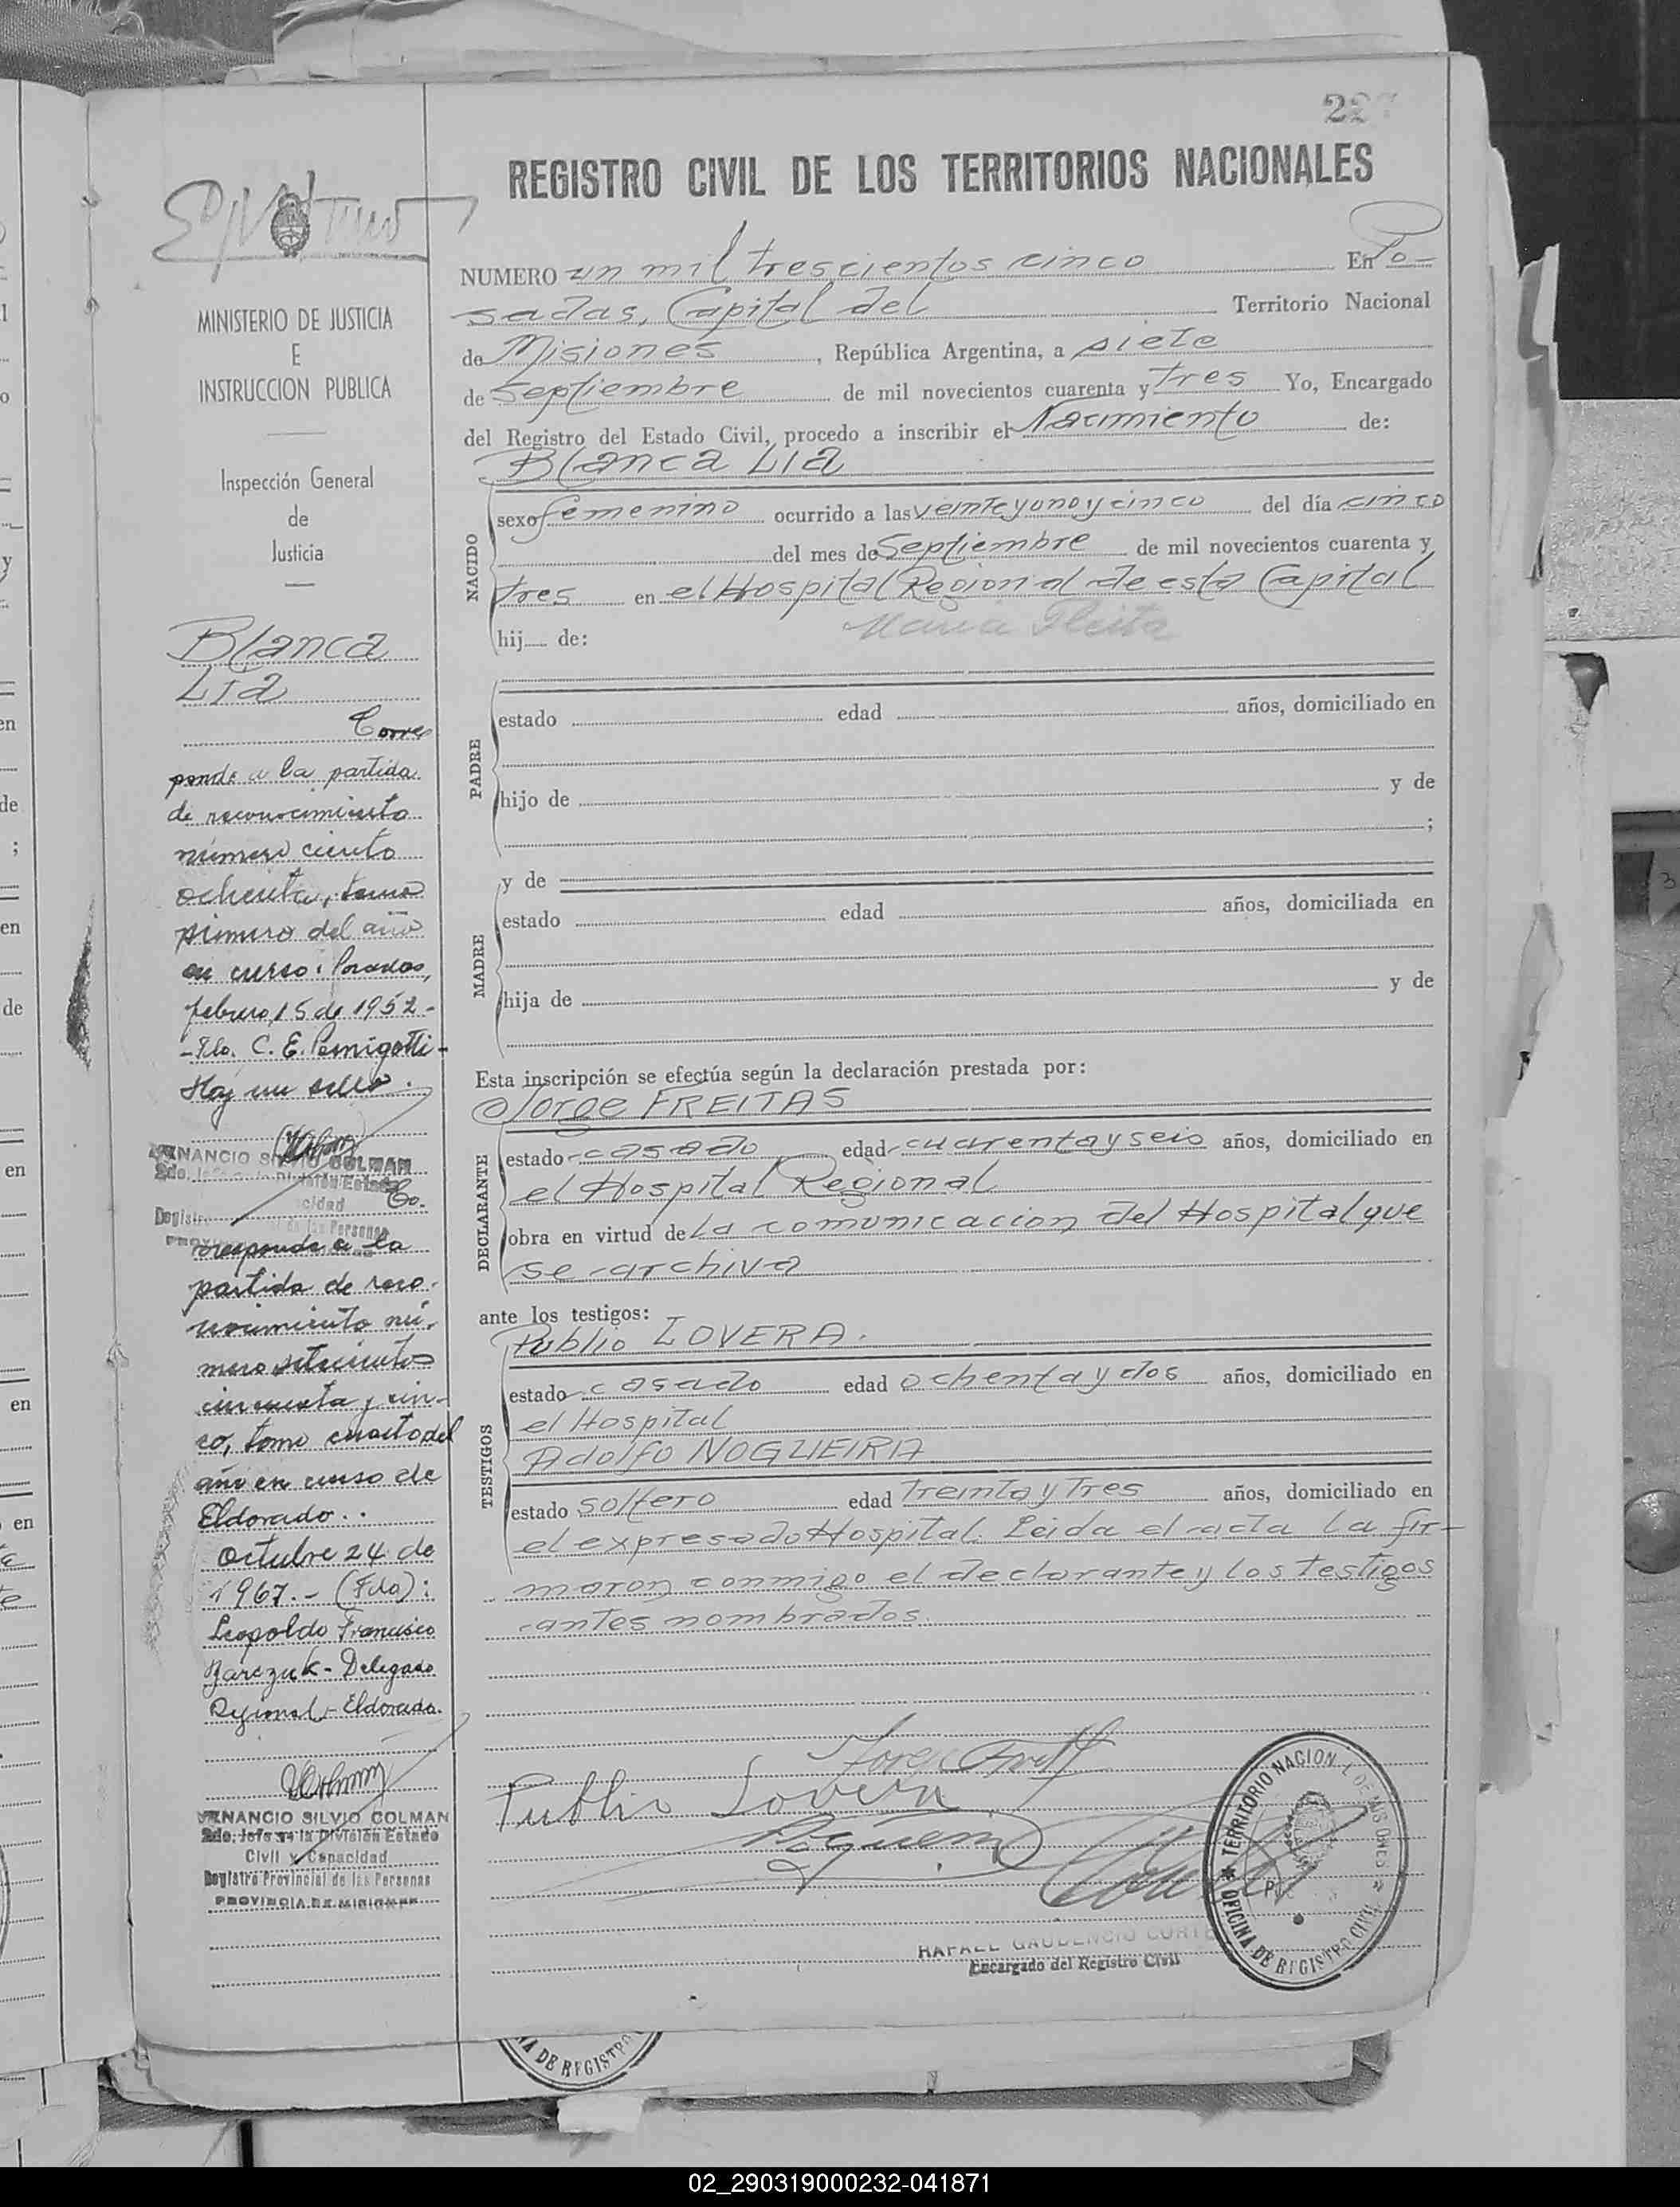 227
REGISTRO CIVIL DE LOS TERRITORIOS NACIONALES
NUMERO un mil trescientos cinco En Po-
sadas, Capital del Territorio Nacional
de Misiones, República Argentina, a siete
de Septiembre de mil novecientos cuarenta y tres Yo, Encargado
del Registro del Estado Civil, procedo a inscribir el Nacimiento de:
Blanca Lia
NACIDO
sexo femenino ocurrido a las veinte y uno y cinco del día cinco
del mes de Septiembre de mil novecientos cuarenta y
tres en el Hospital Regional de esta Capital
hij de: Maria Fleita
PADRE
estado edad años, domiciliado en
hijo de y de
;
MADRE
y de
estado edad años, domiciliada en
hija de y de
Esta inscripción se efectúa según la declaración prestada por:
Jorge FREITAS
DECLARANTE
estado casado edad cuarenta y seis años, domiciliado en
el Hospital Regional
obra en virtud de la comunicacion del Hospital que
se archiva
ante los testigos:
Publio LOVERA.
TESTIGOS
estado casado edad ochenta y dos años, domiciliado en
el Hospital
Adolfo NOGUEIRA
estado soltero edad treinta y tres años, domiciliado en
el expresado Hospital. Leida el acta la fir-
maron conmigo el declarante y los testigos
antes nombrados.
Publio Lovera
RAFAEL GAUDENCIO CORTE
Encargado del Registro Civil
TERRITORIO NACIONAL DE MISIONES
OFICINA DE REGISTRO CIVIL
MINISTERIO DE JUSTICIA
E
INSTRUCCION PUBLICA
Inspección General
de
Justicia
Blanca
Lia
Corres
ponde a la partida
de reconocimiento
número ciento
ochenta, tomo
primero del año
en curso: Posadas,
febrero 15 de 1952-
-Fdo. C. E. Pernigotti-
Hay un sello.
VENANCIO SILVIO COLMAN
2do. Jefe de la División Estado
Co.
rresponde a la
partida de reco-
nocimiento nú-
mero setecientos
cincuenta y cin-
co, tomo cuarto del
año en curso de
Eldorado..
Octubre 24 de
1967.- (Fdo):
Leopoldo Francisco
Barczuk- Delegado
Regional- Eldorado.
VENANCIO SILVIO COLMAN
2do. Jefe de la División Estado
Civil y Capacidad
Registro Provincial de las Personas
PROVINCIA DE MISIONES
DE REGISTRO
02_290319000232-041871